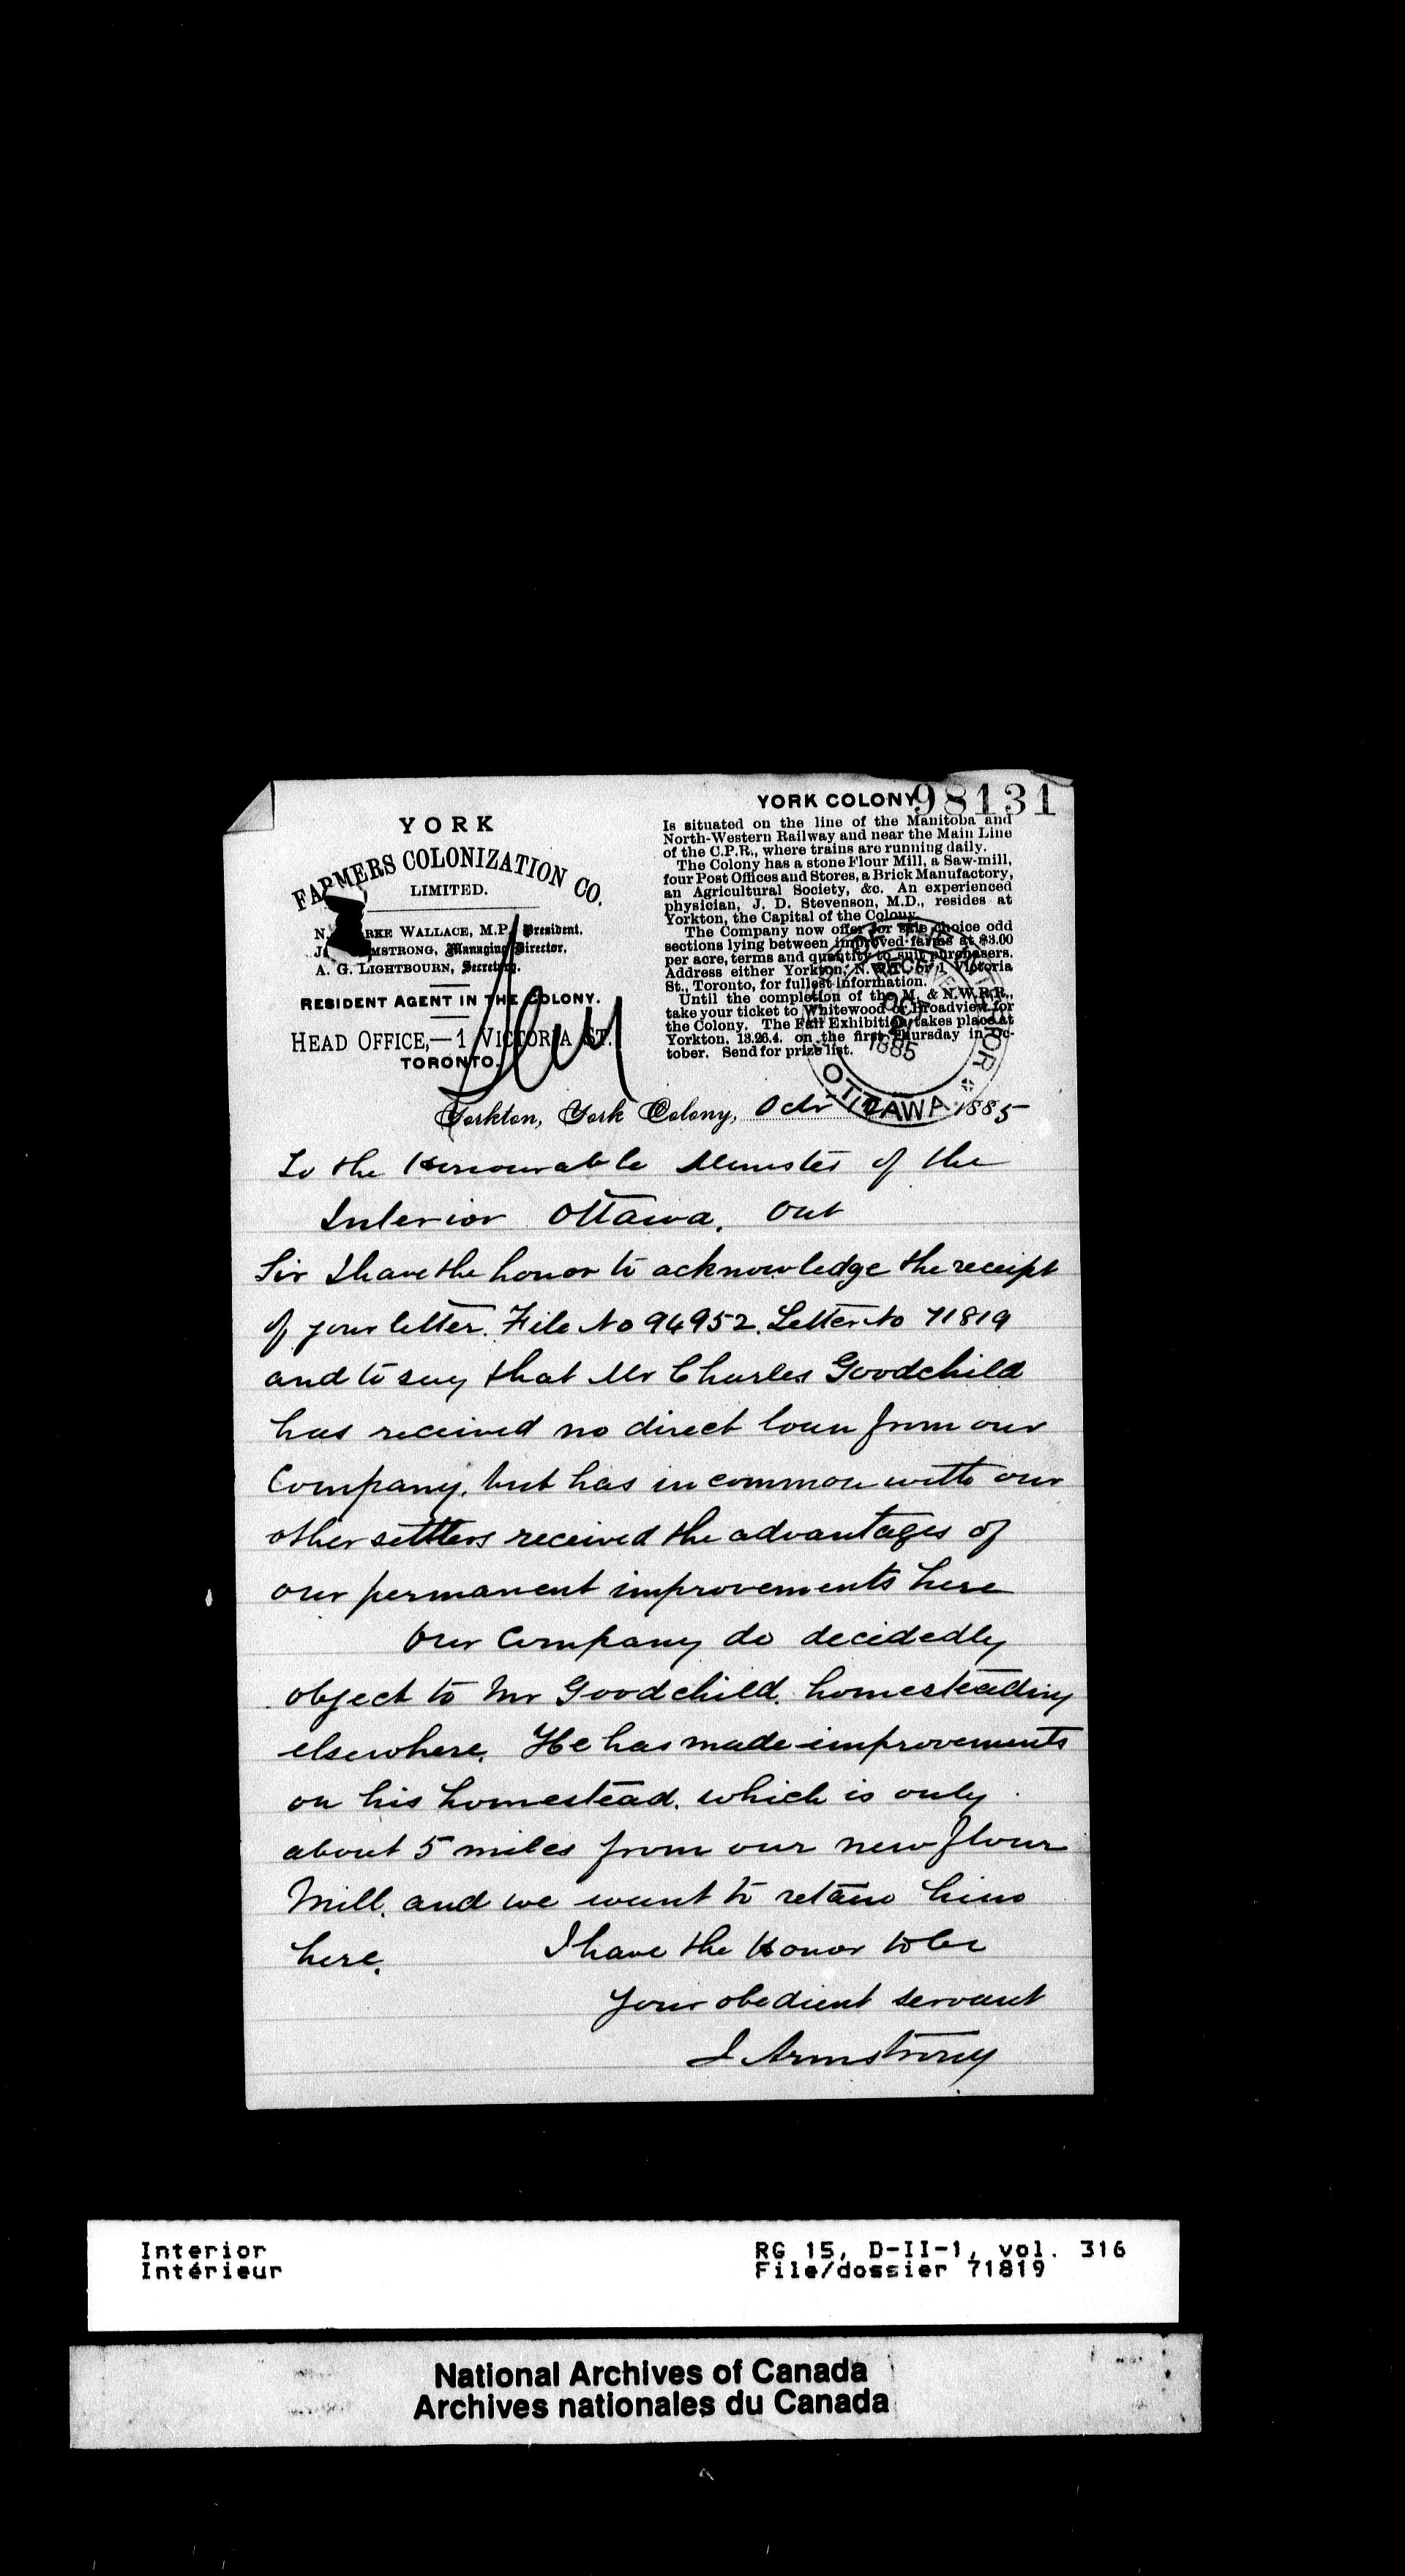 98131
YORK
FARMERS COLONIZATION CO.
LIMITED.
N. RKE WALLACE, M.P. President.
J. MSTRONG, Managing Director.
A. G. LIGHTBOURN, Secretary.
RESIDENT AGENT IN THE COLONY.
HEAD OFFICE,—1 VICTORIA ST.
TORONTO.
YORK COLONY
Is situated on the line of the Manitoba and
North-Western Railway and near the Main Line
of the C.P.R., where trains are running daily.
The Colony has a stone Flour Mill, a Saw-mill,
four Post Offices and Stores, a Brick Manufactory,
an Agricultural Society, &c. An experienced
physician, J. D. Stevenson, M.D., resides at
Yorkton, the Capital of the Colony.
The Company now offer for sale choice odd
sections lying between improved farms at $3.00
per acre, terms and quantity to suit purchasers.
Address either Yorkton, N.W.T. or 1 Victoria
St., Toronto, for fullest information.
Until the completion of the M. & N.W.R.R.,
take your ticket to Whitewood or Broadview for
the Colony. The Fall Exhibition takes place at
Yorkton, 13.26.4. on the first Thursday in Oc-
tober. Send for prize list.
1885
OTTAWA
Yorkton, York Colony, Octr 1885
To the Honourable Minister of the
Interior Ottawa. Ont
Sir I have the honor to acknowledge the receipt
of your letter. File No 94952. Letter No 71819
and to say that Mr Charles Goodchild
has received no direct loan from our
Company, but has in common with our
other settlers received the advantages of
our permanent improvements here
Our Company do decidedly
object to Mr Goodchild homesteading
elsewhere. He has made improvements
on his homestead. which is only
about 5 miles from our new flour
Mill. and we want to retain him
here. I have the Honor to be
your obedient servant
J Armstrong
Interior
Intérieur
RG 15, D-II-1, vol. 316
File/dossier 71819
National Archives of Canada
Archives nationales du Canada